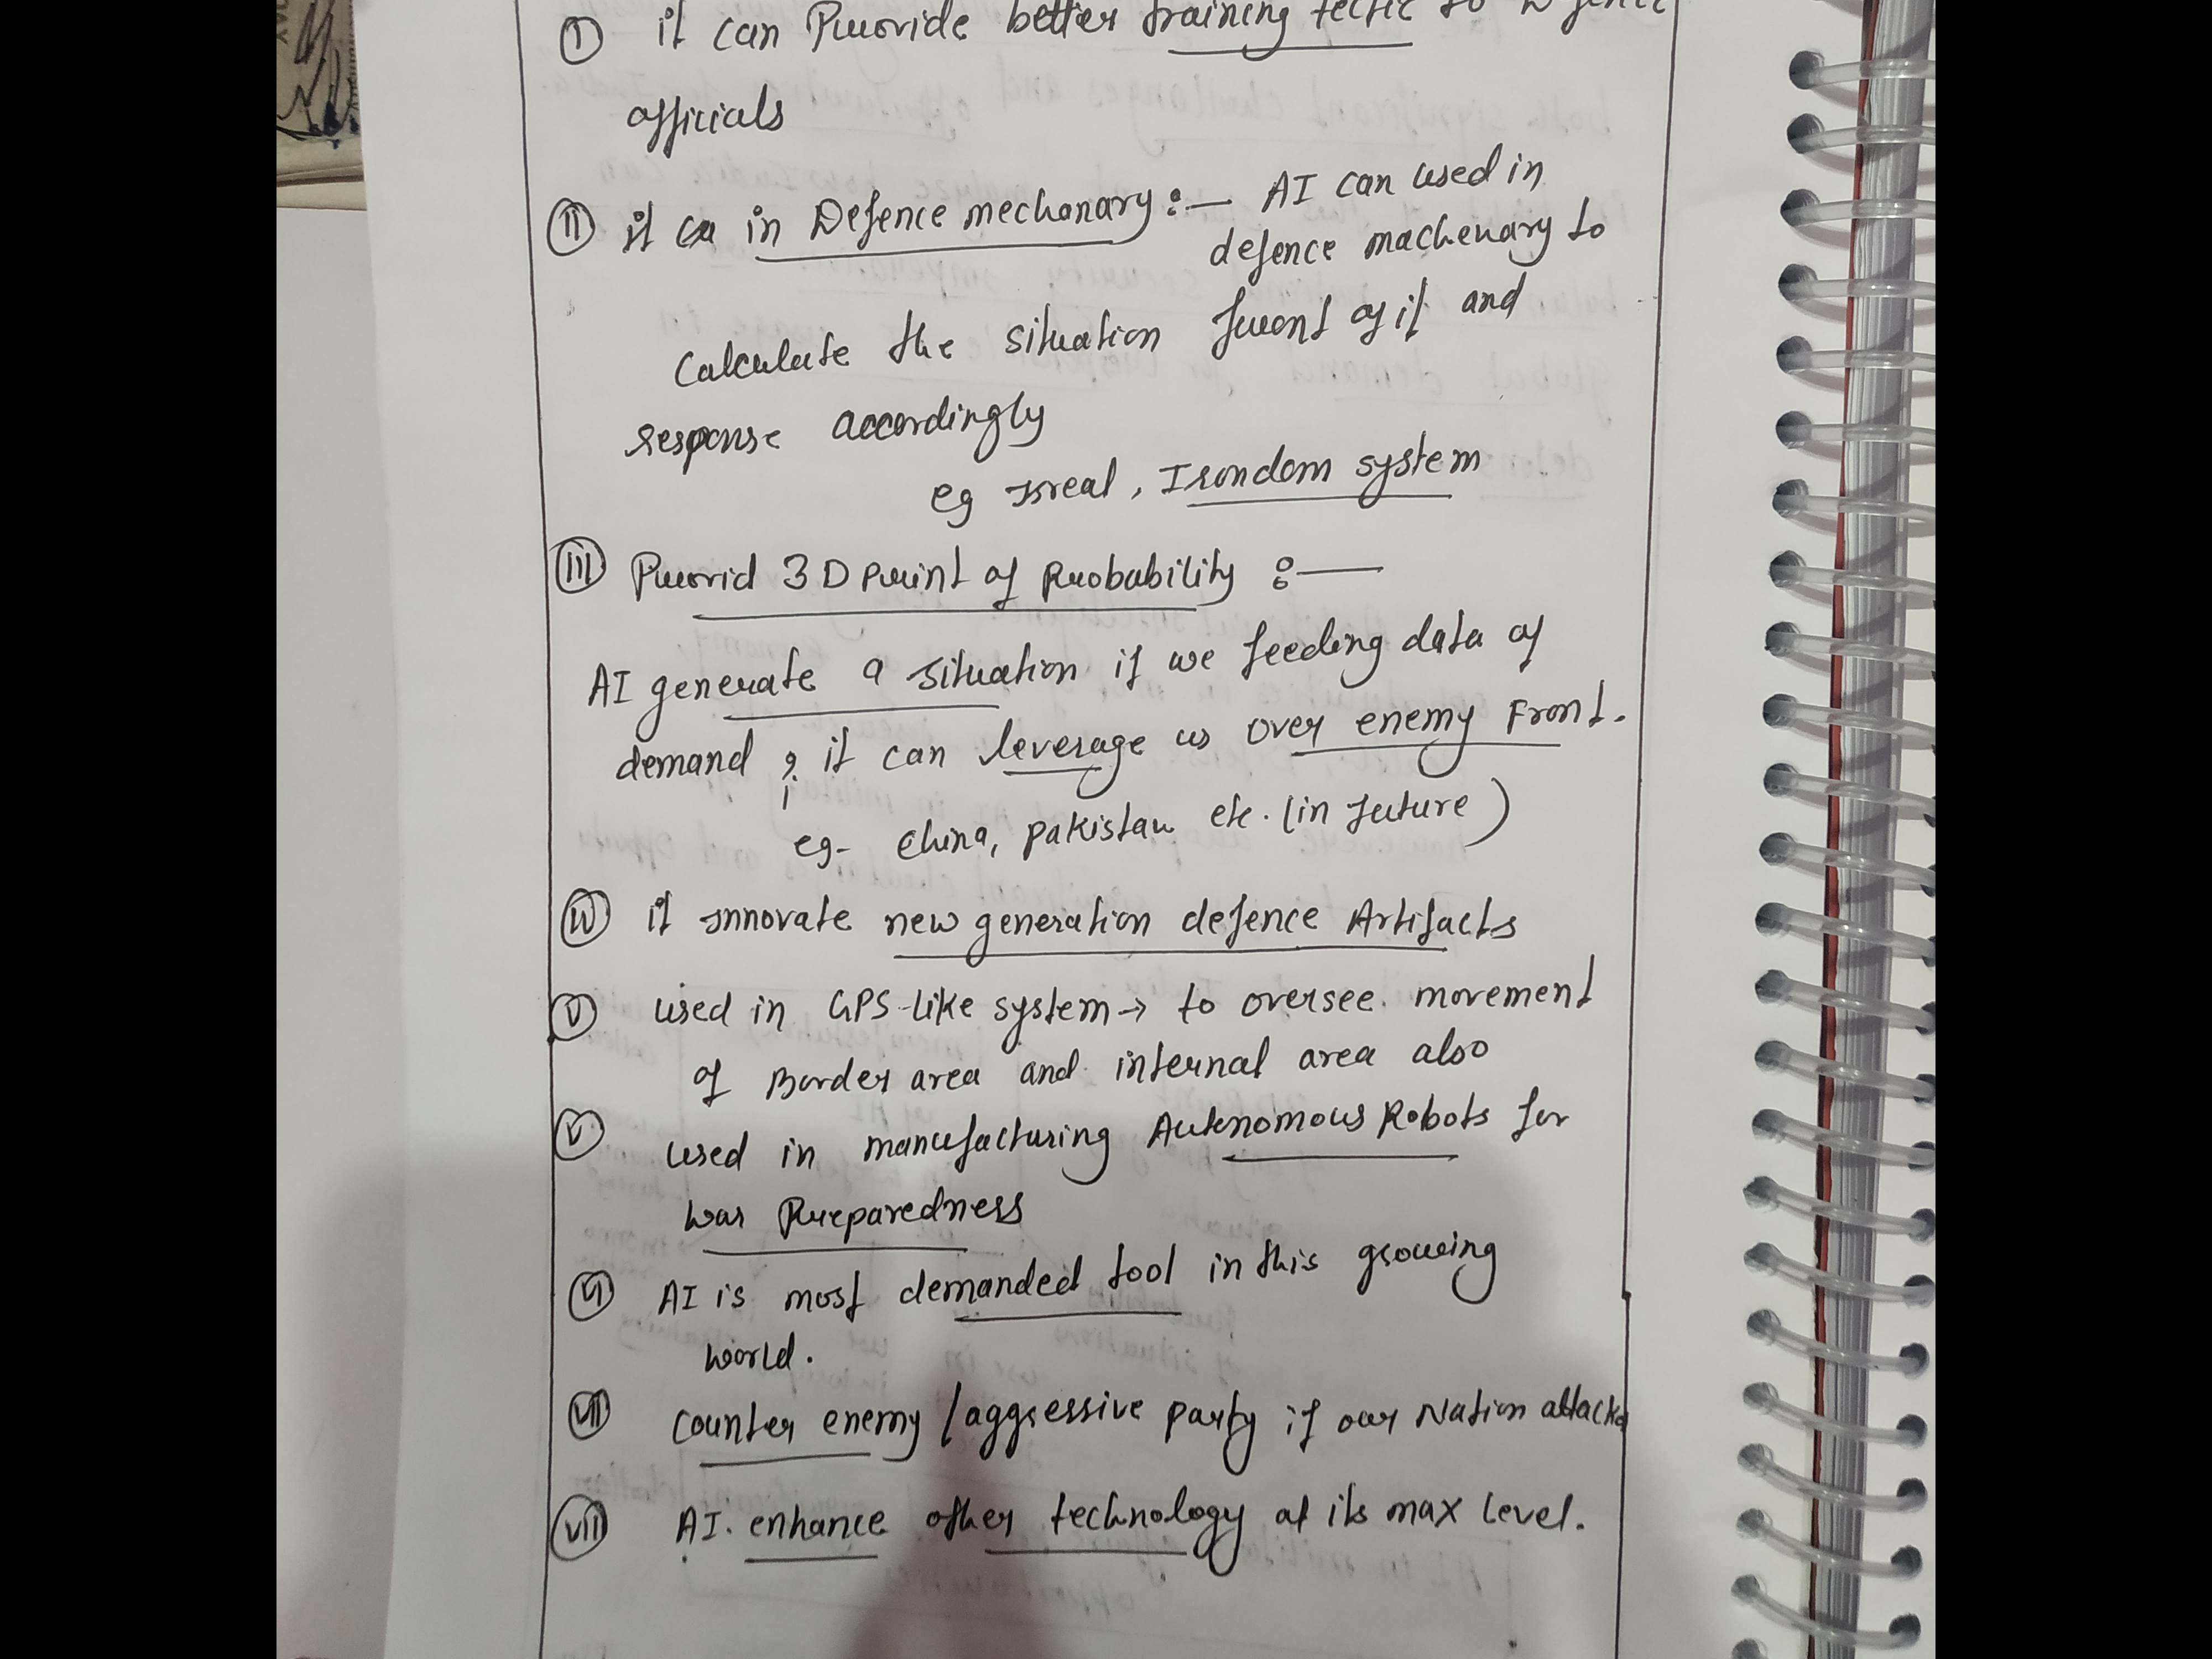 (I) it can Provide better training tectic to Defence
officials
(II) it ca in Defence mechanary :— AI can used in
defence machenary to
calculate the situation front of it and
response accordingly
eg Isreal, Irondom system
(III) Provid 3D print of Probability :—
AI generate a situation if we feeding data of
demand ; it can leverage us over enemy Front.
eg- China, Pakistan etc. (in future)
(IV) it innovate new generation defence Artifacts
(V) used in GPS-like system → to oversee movement
of Border area and internal area also
(V) used in manufacturing Autonomous Robots for
war Preparedness
(VI) AI is most demanded tool in this growing
world.
(VII) counter enemy / aggressive party if our Nation attacked
(VII) AI. enhance other technology at its max level.